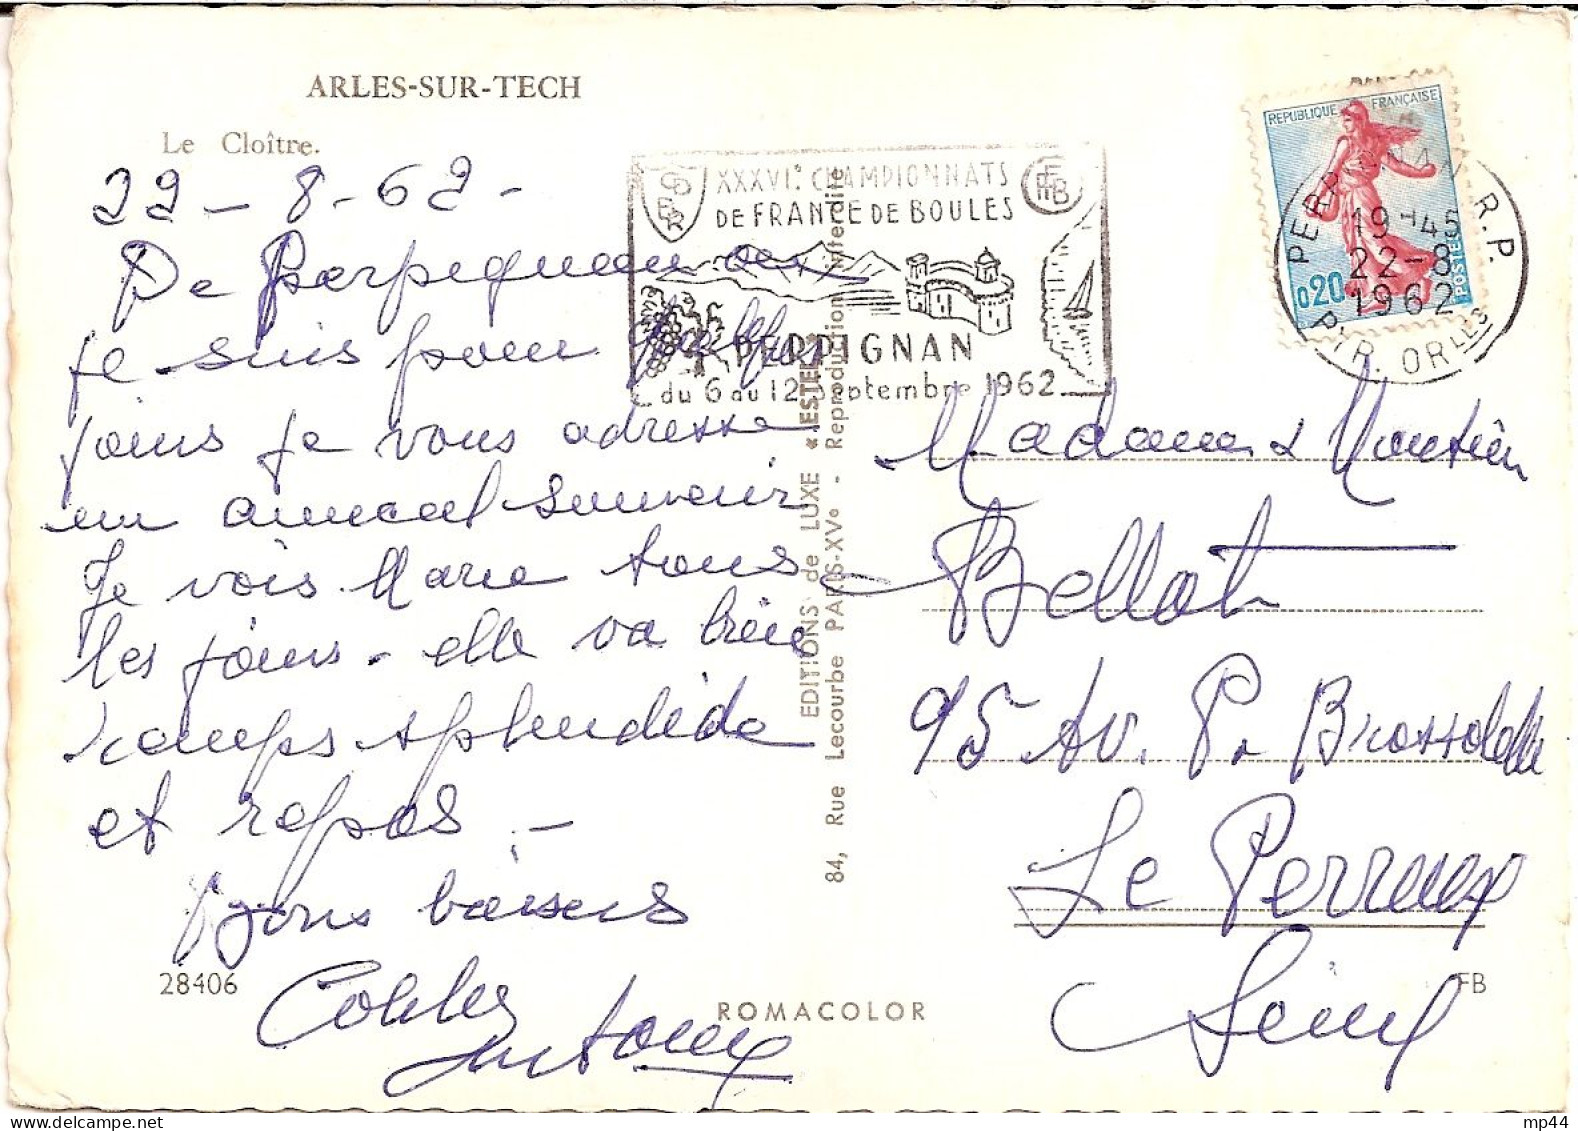 ARLES-SUR-TECH
Le Cloître.
22-8-62-
De Perpignan où
je suis pour quelques
jours je vous adresse
un amical souvenir
Je vois Marie tous
les jours - elle va bien
temps splendide
et repos. -
Bons baisers
Antony
28406
ROMACOLOR
FB
EDITIONS de LUXE « ESTEL »
84, Rue Lecourbe PARIS-XVe - Reproduction interdite
XXXVIe CHAMPIONNATS
DE FRANCE DE BOULES
FFB
PERPIGNAN
du 6 au 12 septembre 1962
REPUBLIQUE FRANÇAISE
0,20
POSTES
PERPIGNAN R.P.
19H45
22-8
1962
PYR. ORles
Madame & Monsieur
Bellot
95 Av. P. Brossolette
Le Perreux
Seine
mp44